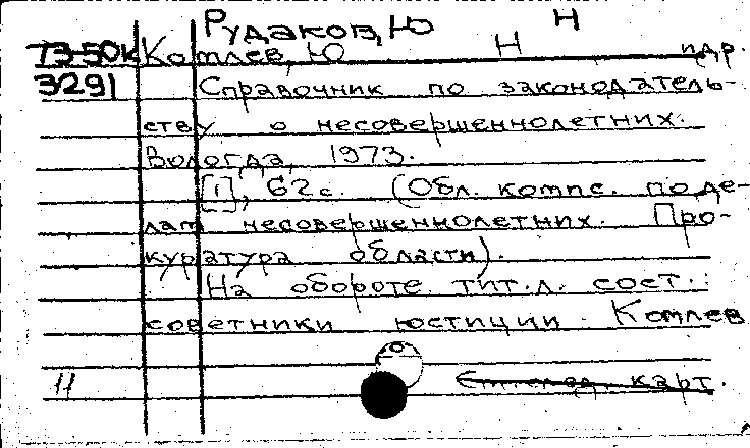 Рудаков, Ю Н
73-50к Котлев, Ю Н и др.
3291 Справочник по законодатель-
ству о несовершеннолетних.
Вологда, 1973.
[1], 62с. (Обл. компс. по де-
лам несовершеннолетних. Про-
куратура области).
На обороте тит.л. сост.:
советники юстиции Котлев
11 карт.